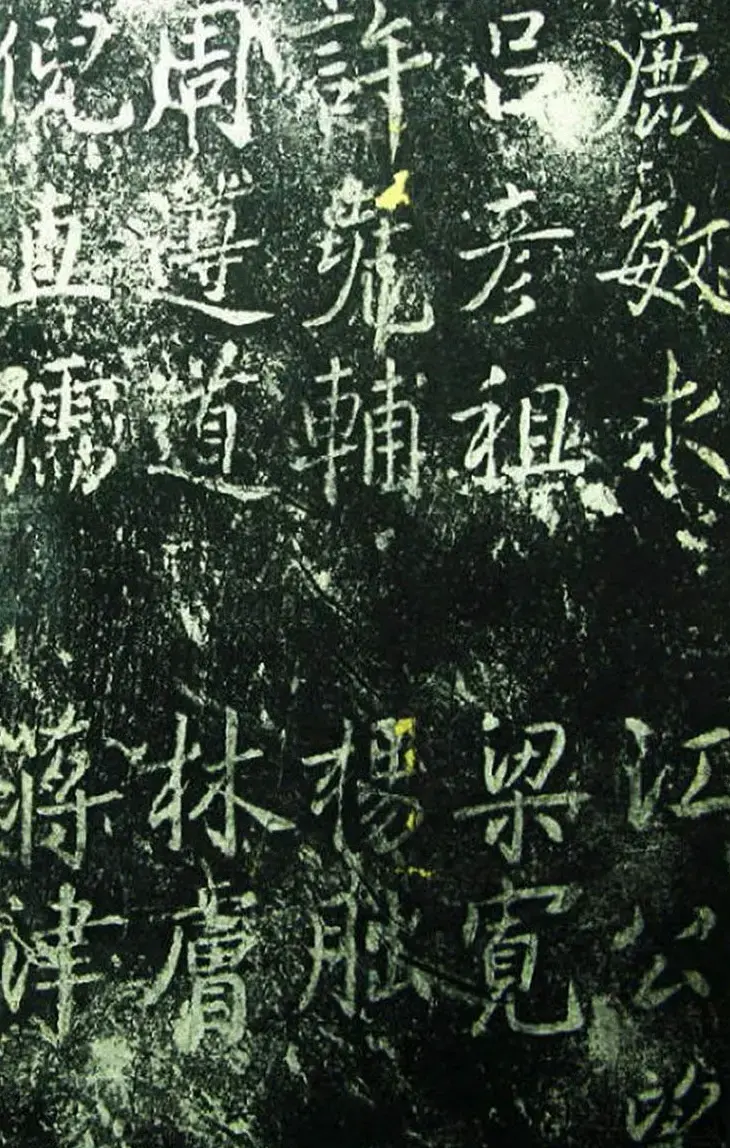 鹿敏求 江公望
呂彥祖 梁寬
許堯輔 楊朏
周遵道 林膚
倪直孺 蔣津